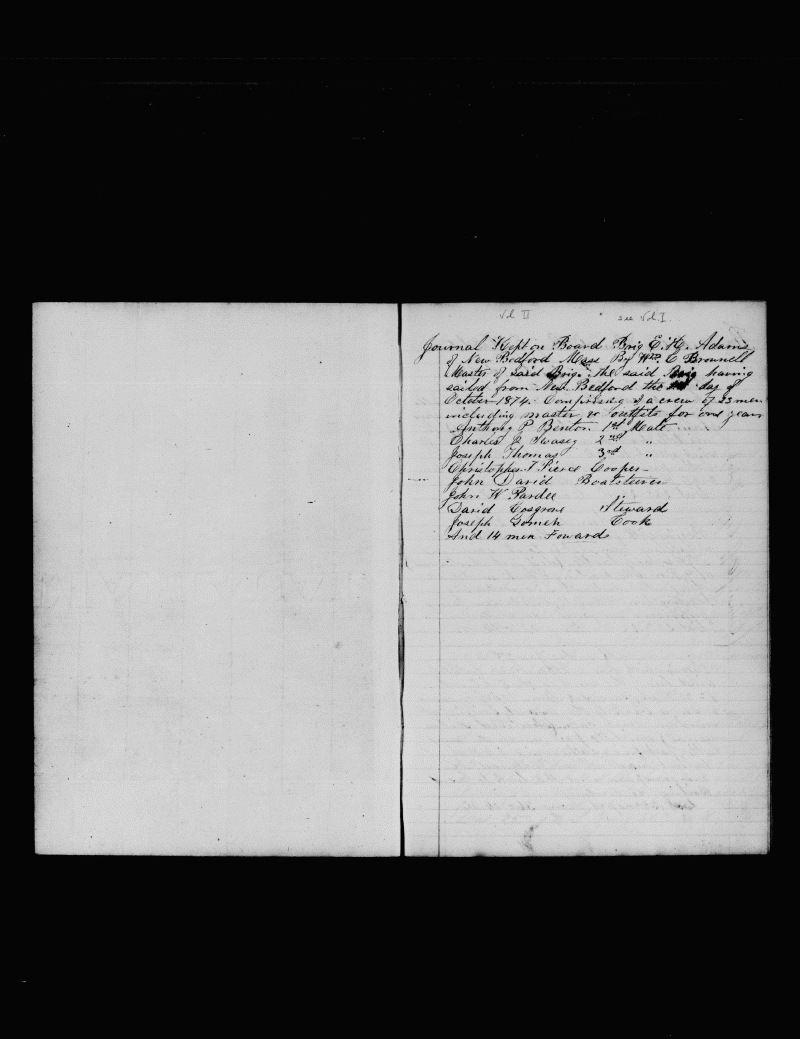 Vol II see Vol. I.
Journal Kept on Board Brig E. H. Adams
of New Bedford Mass By Wm C Brownell
Master of said Brig. the said Brig having
sailed from New Bedford the day of
October 1874. Comprising of a crew of 23 men
including master & outfits for one year
Anthony P Benton 1st Mate
Charles J Swasey 2nd "
Joseph Thomas 3rd "
Christopher T Pierce Cooper
John David Boatsteerer
John W Pardee "
David Cosgrove Steward
Joseph Gomen Cook
And 14 men Foward